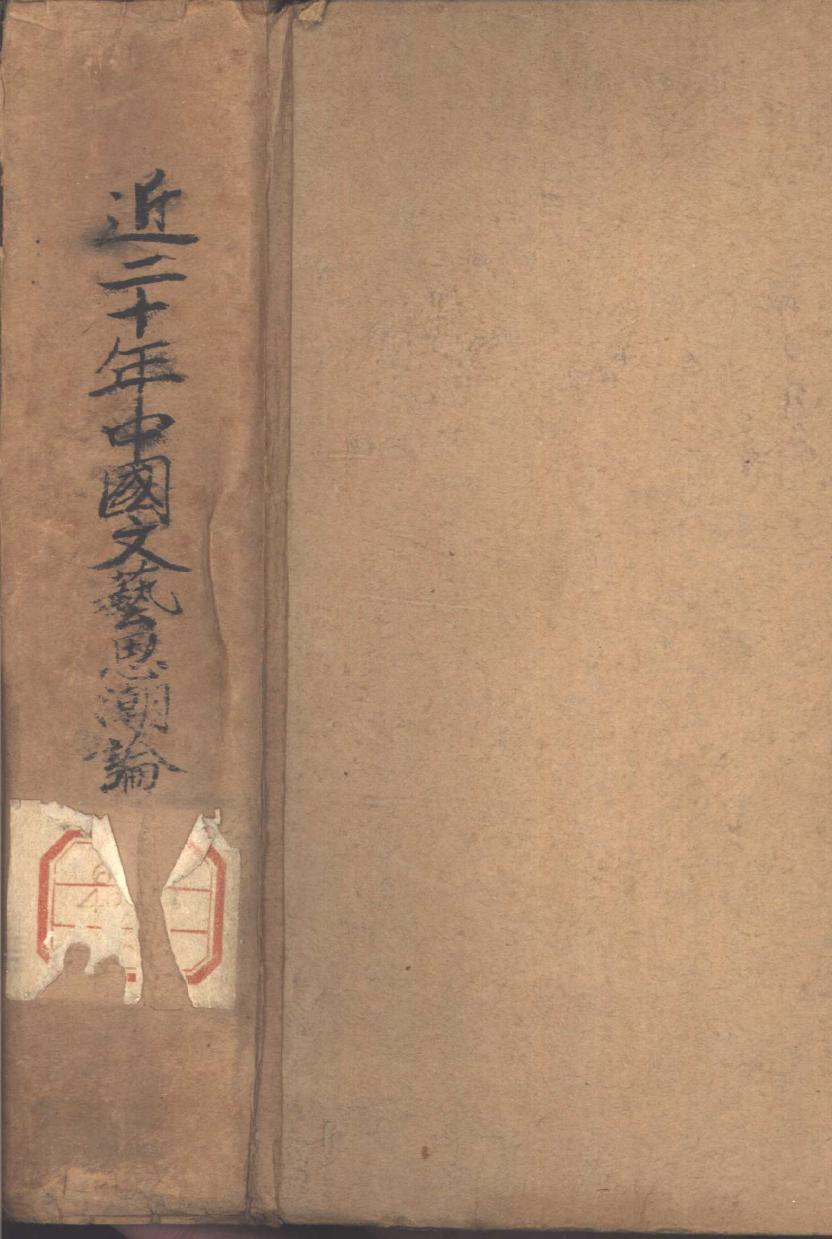 近二十年中國文藝思潮論